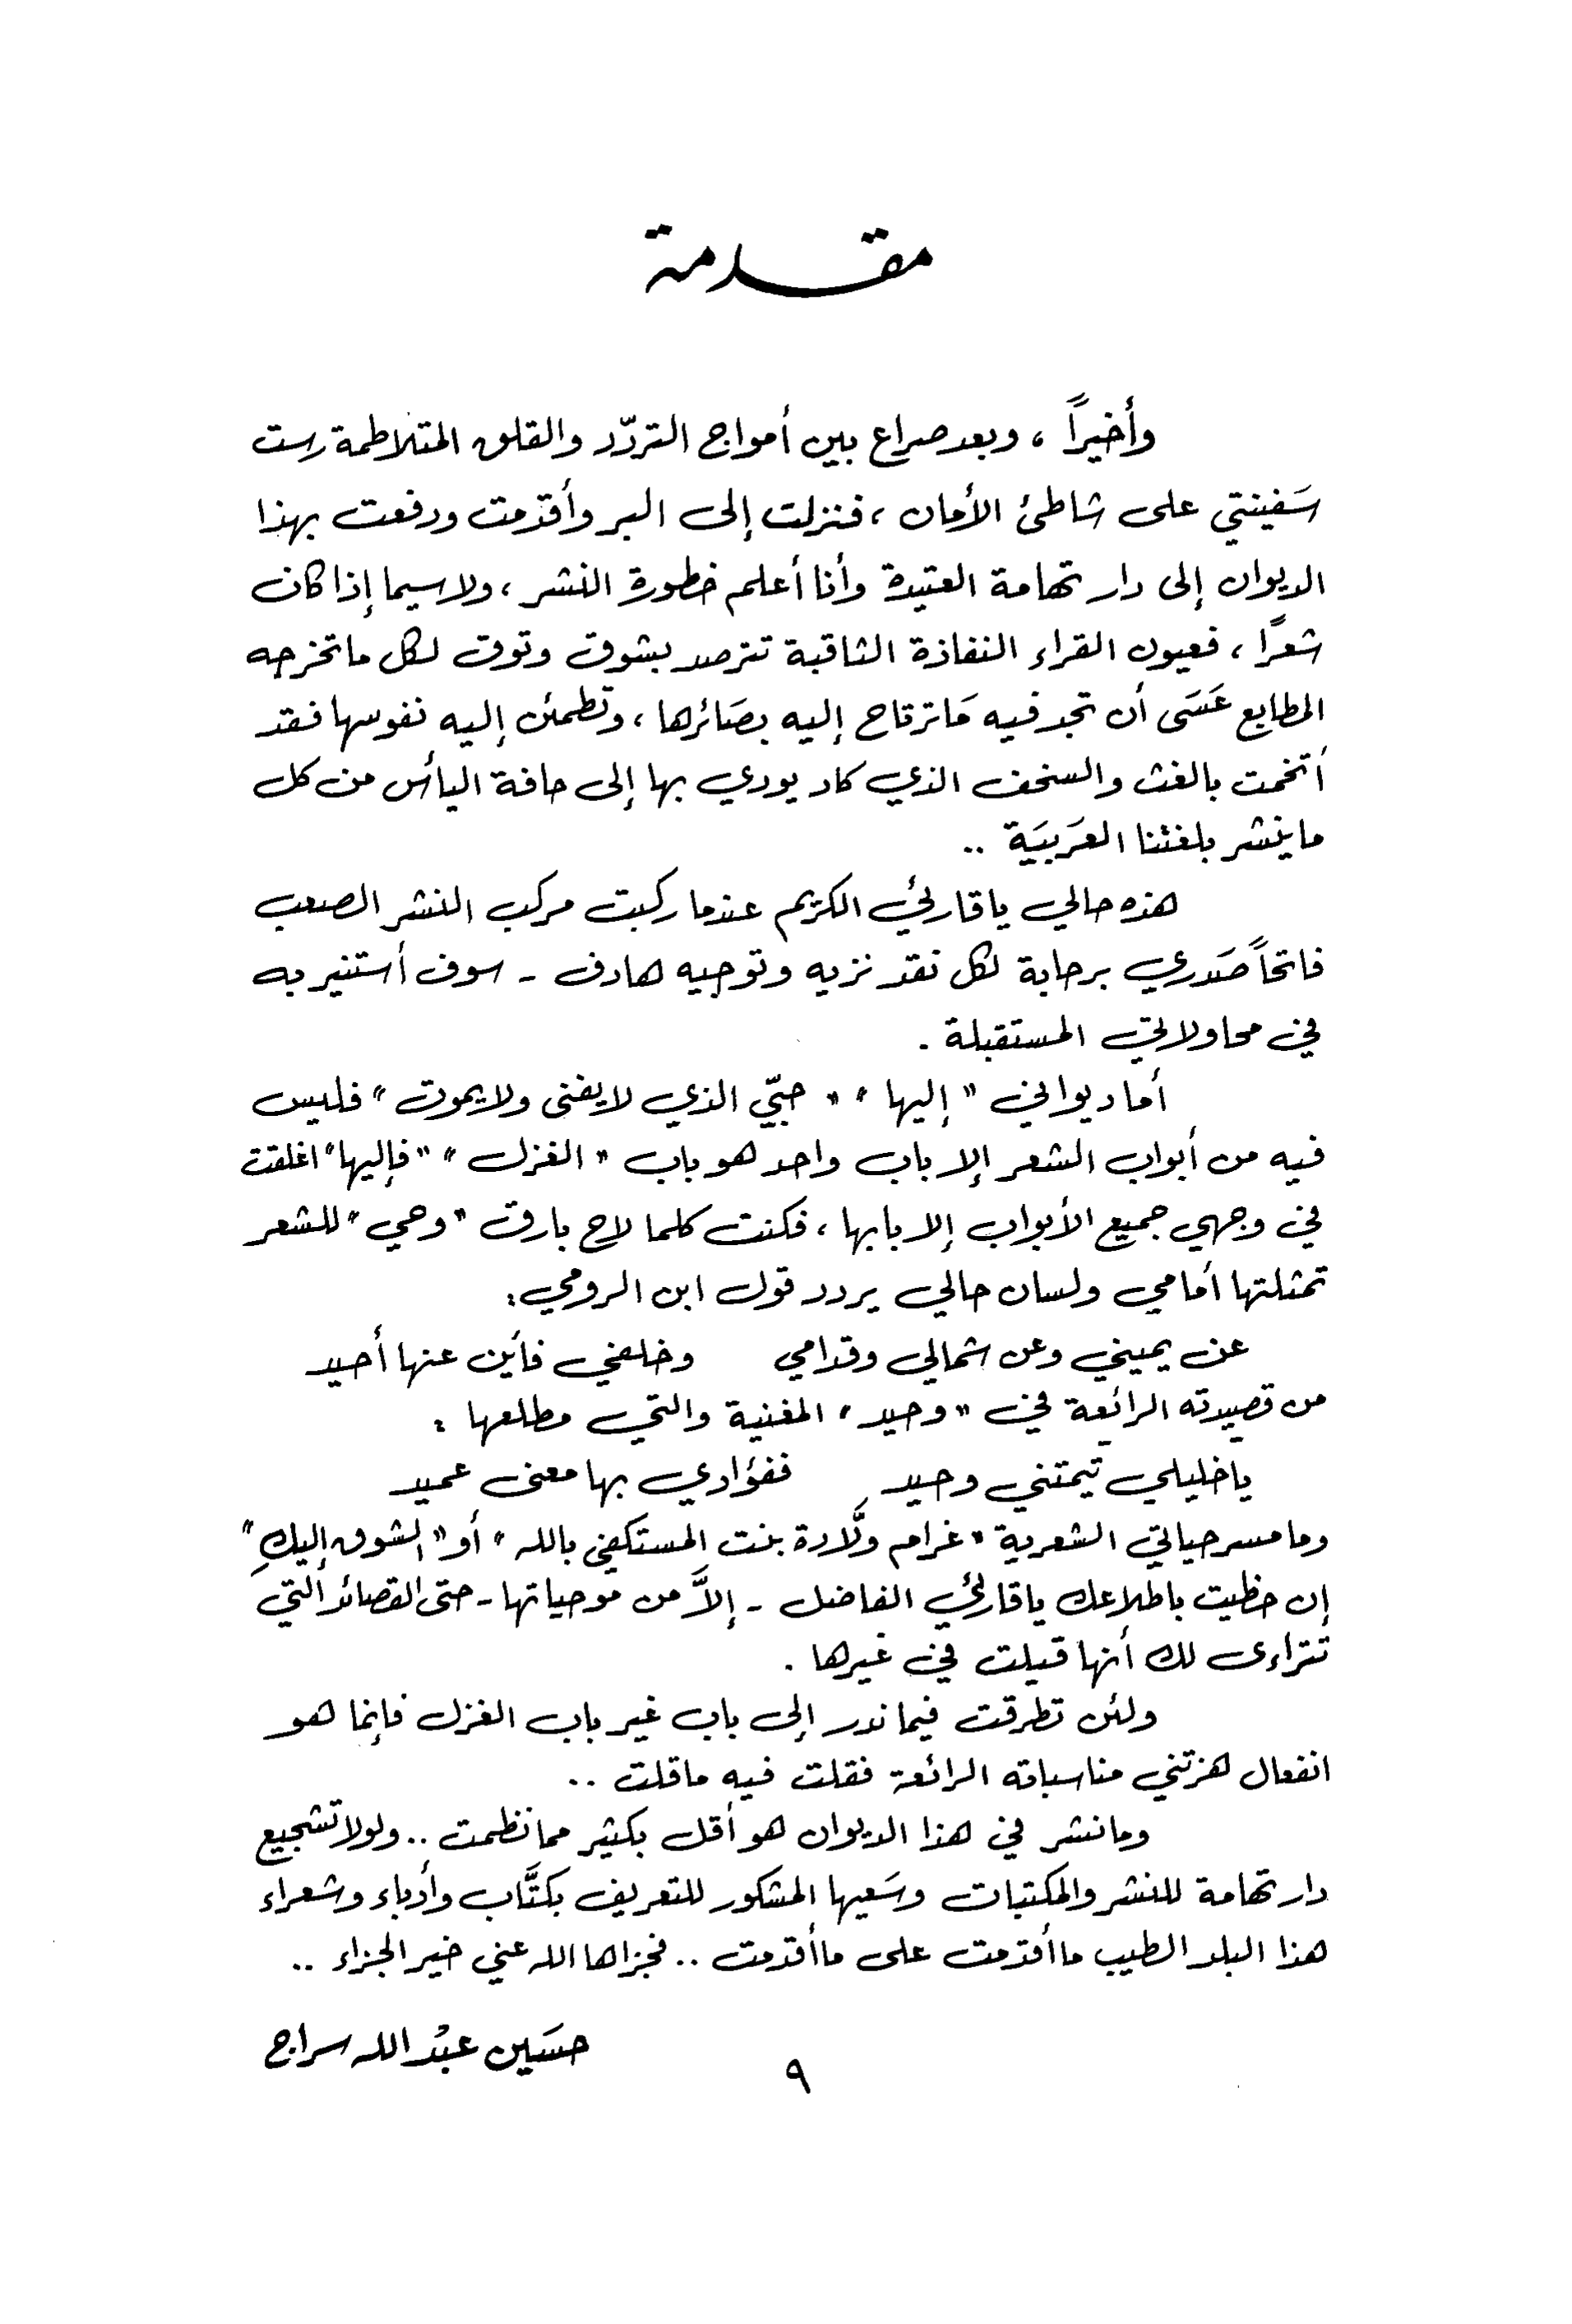 مقدمة
وأخيراً ، وبعد صراع بين أمواج التردّد والقلق المتلاطمة رست
سَفينتي على شاطئ الأمان ، فنزلت إلى البر وأقدمت ودفعت بهذا
الديوان إلى دار تهامة العتيدة وأنا أعلم خطورة النشر ، ولاسيما إذا كان
شعرًا ، فعيون القراء النفاذة الثاقبة تترصد بشوق وتوق لكل ماتخرجه
المطابع عَسَى أن تجد فيه مَاترتاح إليه بصَائرها ، وتطمئن إليه نفوسها فقد
أتخمت بالغث والسخف الذي كاد يودي بها إلى حافة اليأس من كل
ماينشر بلغتنا العَربيَة ..
هذه حالي ياقارئي الكريم عندما ركبت مركب النشر الصعب
فاتحاً صَدري برحابة لكل نقد نزيه وتوجيه هادف - سوف أستنير به
في محاولاتي المستقبلة .
أما ديواني " إليها " " حبّي الذي لايفنى ولايموت " فليس
فيه من أبواب الشعر إلا باب واحد هو باب " الغزل " " فإليها " اغلقت
في وجهي جميع الأبواب إلا بابها ، فكنت كلما لاح بارق " وحي " للشعر
تمثلتها أمامي ولسان حالي يردد قول ابن الرومي :
عن يميني وعن شمالي وقدامي وخلفي فأين عنها أحيد
من قصيدته الرائعة في " وحيد " المغنية والتي مطلعها :
ياخليلي تيمتني وحيد ففؤادي بها معنى عميد
وما مسرحياتي الشعرية " غرام ولَّادة بنت المستكفي بالله " أو " الشوق إليكِ "
إن حظيت باطلاعك ياقارئي الفاضل - إلاَّ من موحياتها - حتى القصائد التي
تتراءى لك أنها قيلت في غيرها .
ولئن تطرقت فيما ندر إلى باب غير باب الغزل فإنما هو
انفعال هزتني مناسباته الرائعة فقلت فيه ماقلت ..
ومانشر في هذا الديوان هو أقل بكثير مما نظمت .. ولولا تشجيع
دار تهامة للنشر والمكتبات وسَعيها المشكور للتعريف بكتَّاب وأدباء وشعراء
هذا البلد الطيب ماأقدمت على ماأقدمت .. فجزاها الله عني خير الجزاء ..
حسَين عبْد الله سراج
٩